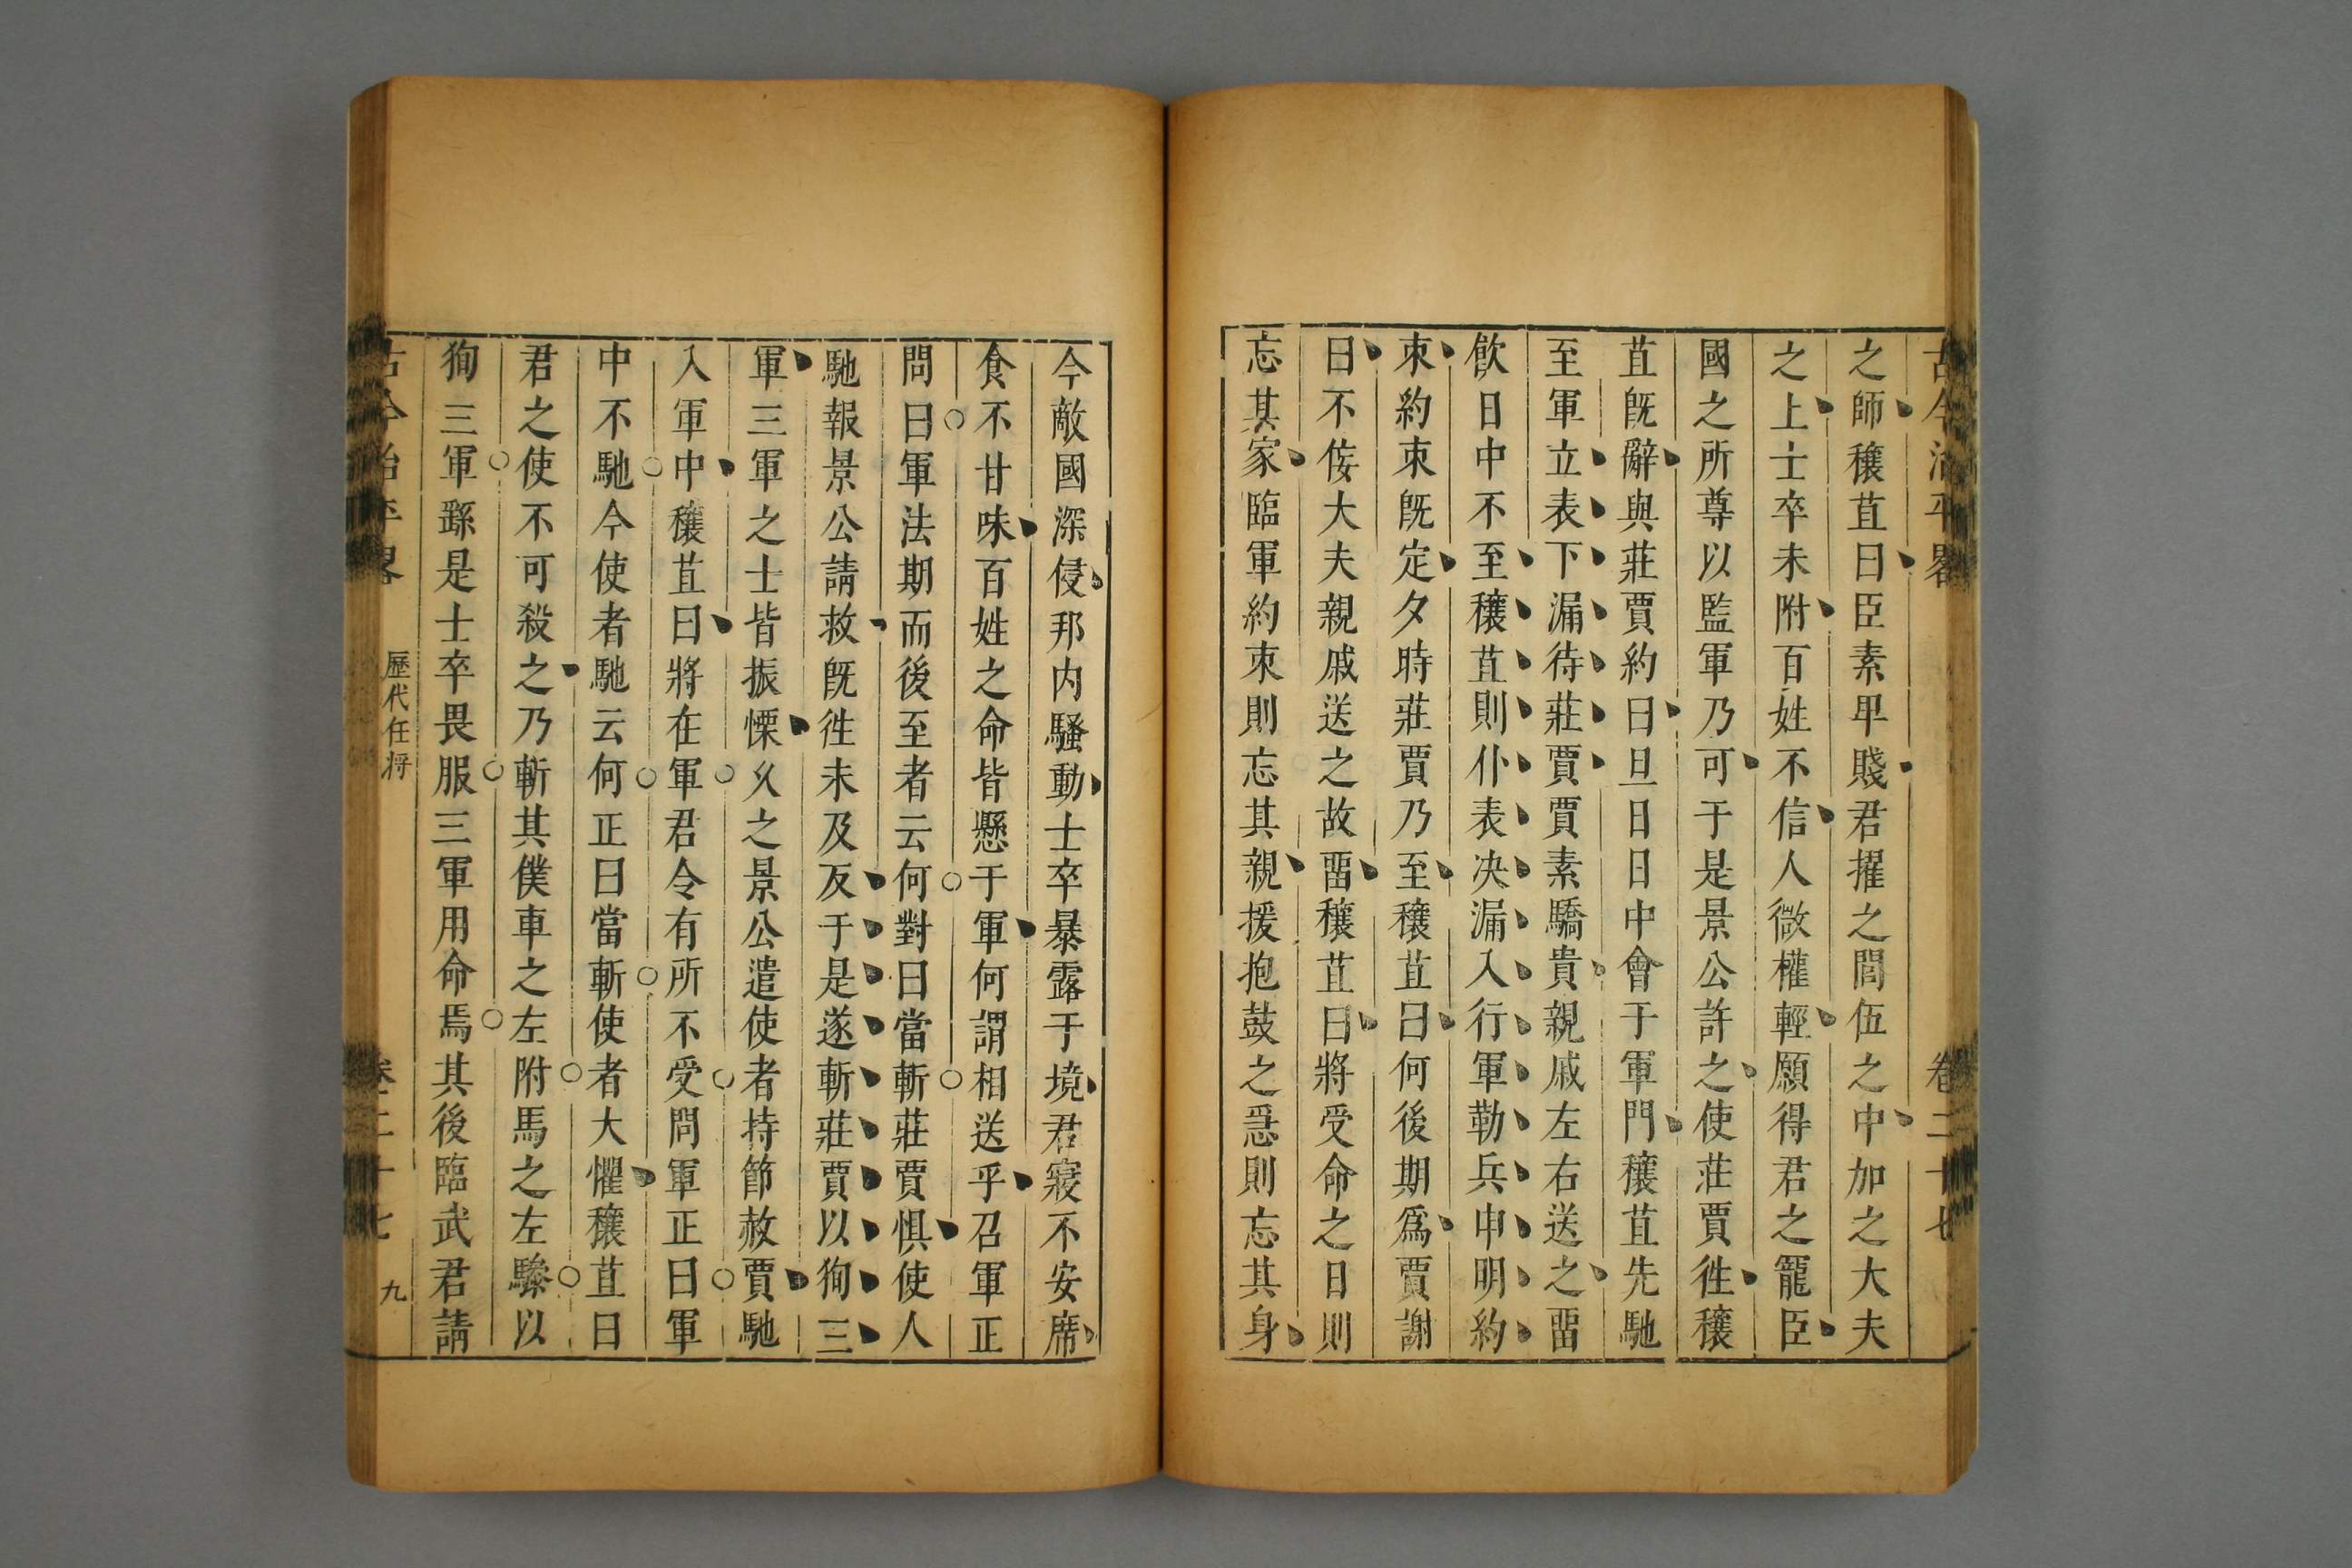 古今治平畧 卷二十七
之師穰苴曰臣素卑賤君擢之閭伍之中加之大夫
之上士卒未附百姓不信人微權輕願得君之寵臣
國之所尊以監軍乃可于是景公許之使莊賈徃穰
苴旣辭與莊賈約曰旦日日中會于軍門穰苴先馳
至軍立表下漏待莊賈賈素驕貴親戚左右送之畱
飲日中不至穰苴則仆表决漏入行軍勒兵申明約
束約束旣定夕時莊賈乃至穰苴曰何後期爲賈謝
曰不佞大夫親戚送之故畱穰苴曰將受命之日則
忘其家臨軍約束則忘其親援抱鼓之急則忘其身
今敵國深侵邦内騷動士卒暴露于境君寢不安席
食不甘味百姓之命皆懸于軍何謂相送乎召軍正
問曰軍法期而後至者云何對曰當斬莊賈惧使人
馳報景公請救旣徃未及反于是遂斬莊賈以狥三
軍三軍之士皆振慄乆之景公遣使者持節赦賈馳
入軍中穰苴曰將在軍君令有所不受問軍正曰軍
中不馳今使者馳云何正曰當斬使者大懼穰苴曰
君之使不可殺之乃斬其僕車之左附馬之左驂以
狥三軍繇是士卒畏服三軍用命焉其後臨武君請
古今治平畧 歷代任將 卷二十七 九